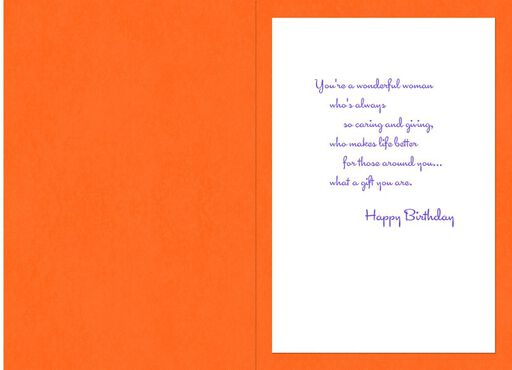 You're a wonderful woman
who's always
so caring and giving,
who makes life better
for those around you...
what a gift you are.
Happy Birthday